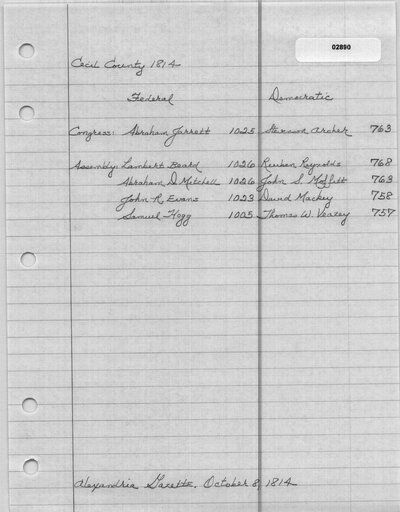 02890
Cecil County 1814
Federal Democratic
Congress: Abraham Jarrett 1025 Stevenson Archer 763
Assembly: Lambert Beard 1026 Reuben Reynolds 768
Abraham D. Mitchell 1026 John S. Moffitt 763
John R. Evans 1023 David Mackey 758
Samuel Hogg 1005 Thomas W. Veazey 757
Alexandria Gazette, October 8, 1814